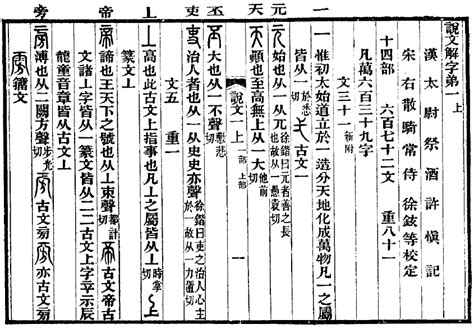 一
元
天
丕
吏
丄
帝
旁
說文解字弟一上
漢太尉祭酒許愼記
宋右散騎常侍徐鉉等校定
十四部 六百七十二文 重八十一
凡萬六百三十九字
文三十一新附
一惟初太始道立於一造分天地化成萬物凡一之屬
皆从一於悉切弌古文一
元始也从一从兀徐鍇曰元者善之長也故从一愚袁切
天顚也至高無上从一大他前切
說文一上 一部 上部
丕大也从一不聲敷悲切
吏治人者也从一从史史亦聲徐鍇曰吏之治人心主於一故从一力置切
文五 重一
丄高也此古文上指事也凡丄之屬皆从丄時掌切
篆文丄
帝諦也王天下之號也从丄朿聲都計切古文帝古
文諸丄字皆从一篆文皆从二二古文上字䇂示辰
龍童音章皆从古文丄
旁溥也从二闕方聲步光切古文旁亦古文旁
籒文